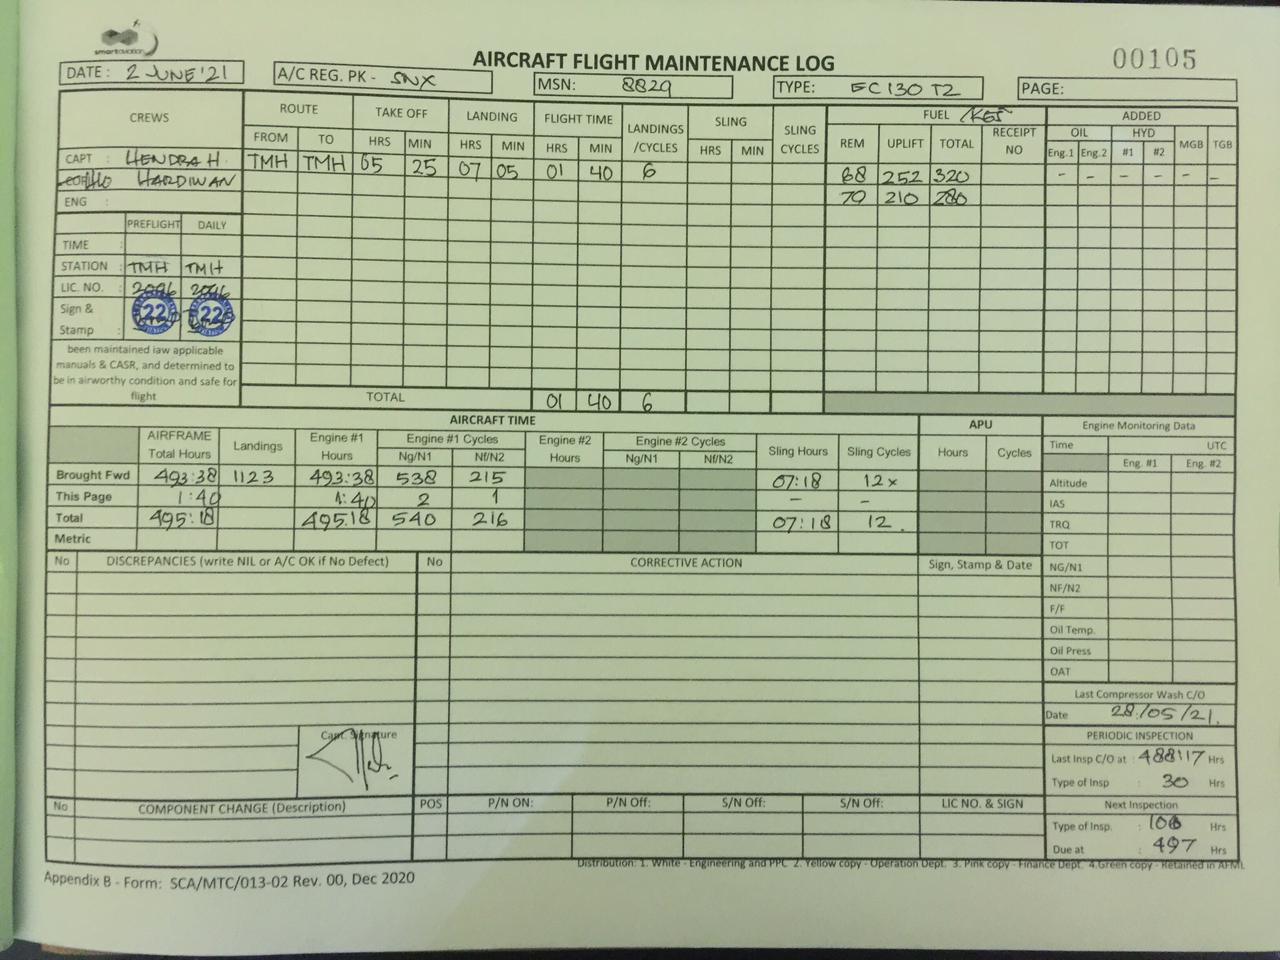 smartaviation
AIRCRAFT FLIGHT MAINTENANCE LOG
00105
DATE : 2 JUNE '21
A/C REG. PK - SNX
MSN: 8829
TYPE: EC 130 T2
PAGE:
CREWS ROUTE TAKE OFF LANDING FLIGHT TIME LANDINGS /CYCLES SLING SLING CYCLES FUEL /KGS ADDED
FROM TO HRS MIN HRS MIN HRS MIN HRS MIN REM UPLIFT TOTAL RECEIPT NO OIL HYD MGB TGB
Eng.1 Eng.2 #1 #2
CAPT : HENDRA H. TMH TMH 05 25 07 05 01 40 6 68 252 320 - - - - - -
HARDIWAN 70 210 280
ENG :
PREFLIGHT DAILY
TIME :
STATION : TMH TMH
LIC. NO. : 2096 2096
Sign & Stamp : 22 22
been maintained iaw applicable
manuals & CASR, and determined to
be in airworthy condition and safe for
flight
TOTAL 01 40 6
AIRCRAFT TIME APU Engine Monitoring Data
AIRFRAME Total Hours Landings Engine #1 Hours Engine #1 Cycles Engine #2 Hours Engine #2 Cycles Sling Hours Sling Cycles Hours Cycles Time UTC
Ng/N1 Nf/N2 Ng/N1 Nf/N2 Eng. #1 Eng. #2
Brought Fwd 493:38 1123 493:38 538 215 07:18 12x
This Page 1:40 1:40 2 1 - -
Total 495:18 495:18 540 216 07:18 12
Metric
Altitude
IAS
TRQ
TOT
NG/N1
NF/N2
F/F
Oil Temp.
Oil Press
OAT
No DISCREPANCIES (write NIL or A/C OK if No Defect) No CORRECTIVE ACTION Sign, Stamp & Date
Last Compressor Wash C/O
Date 28/05/21.
Capt. Signature
PERIODIC INSPECTION
Last Insp C/O at : 488:17 Hrs
Type of Insp : 30 Hrs
Next Inspection
Type of Insp. : 100 Hrs
Due at : 497 Hrs
No COMPONENT CHANGE (Description) POS P/N ON: P/N Off: S/N Off: S/N Off: LIC NO. & SIGN
Distribution: 1. White - Engineering and PPC 2. Yellow copy - Operation Dept. 3. Pink copy - Finance Dept. 4.Green copy - Retained in AFML
Appendix B - Form: SCA/MTC/013-02 Rev. 00, Dec 2020